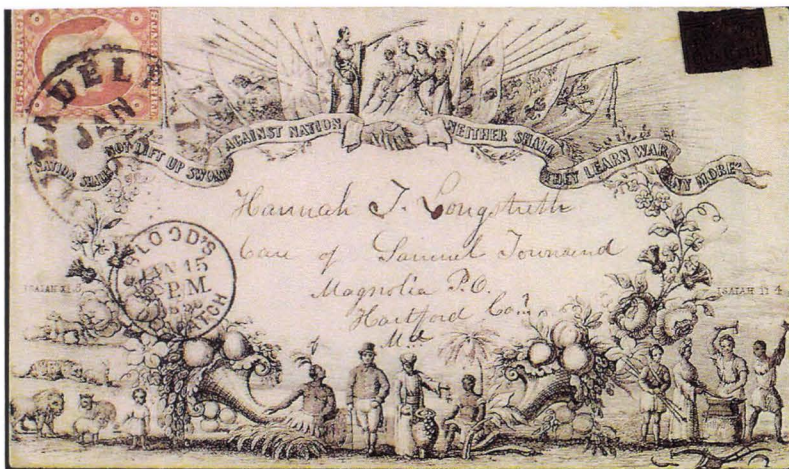 U.S. POSTAGE
THREE CENTS
JAN
NATION SHALL NOT LIFT UP SWORD AGAINST NATION NEITHER SHALL THEY LEARN WAR ANY MORE
Hannah J. Longstreth
Care of Samuel Townsend
Magnolia P.O.
Hartford Co.
Md
BLOOD'S
JAN 15
P.M.
DISPATCH
ISAIAH
ISAIAH 11 4